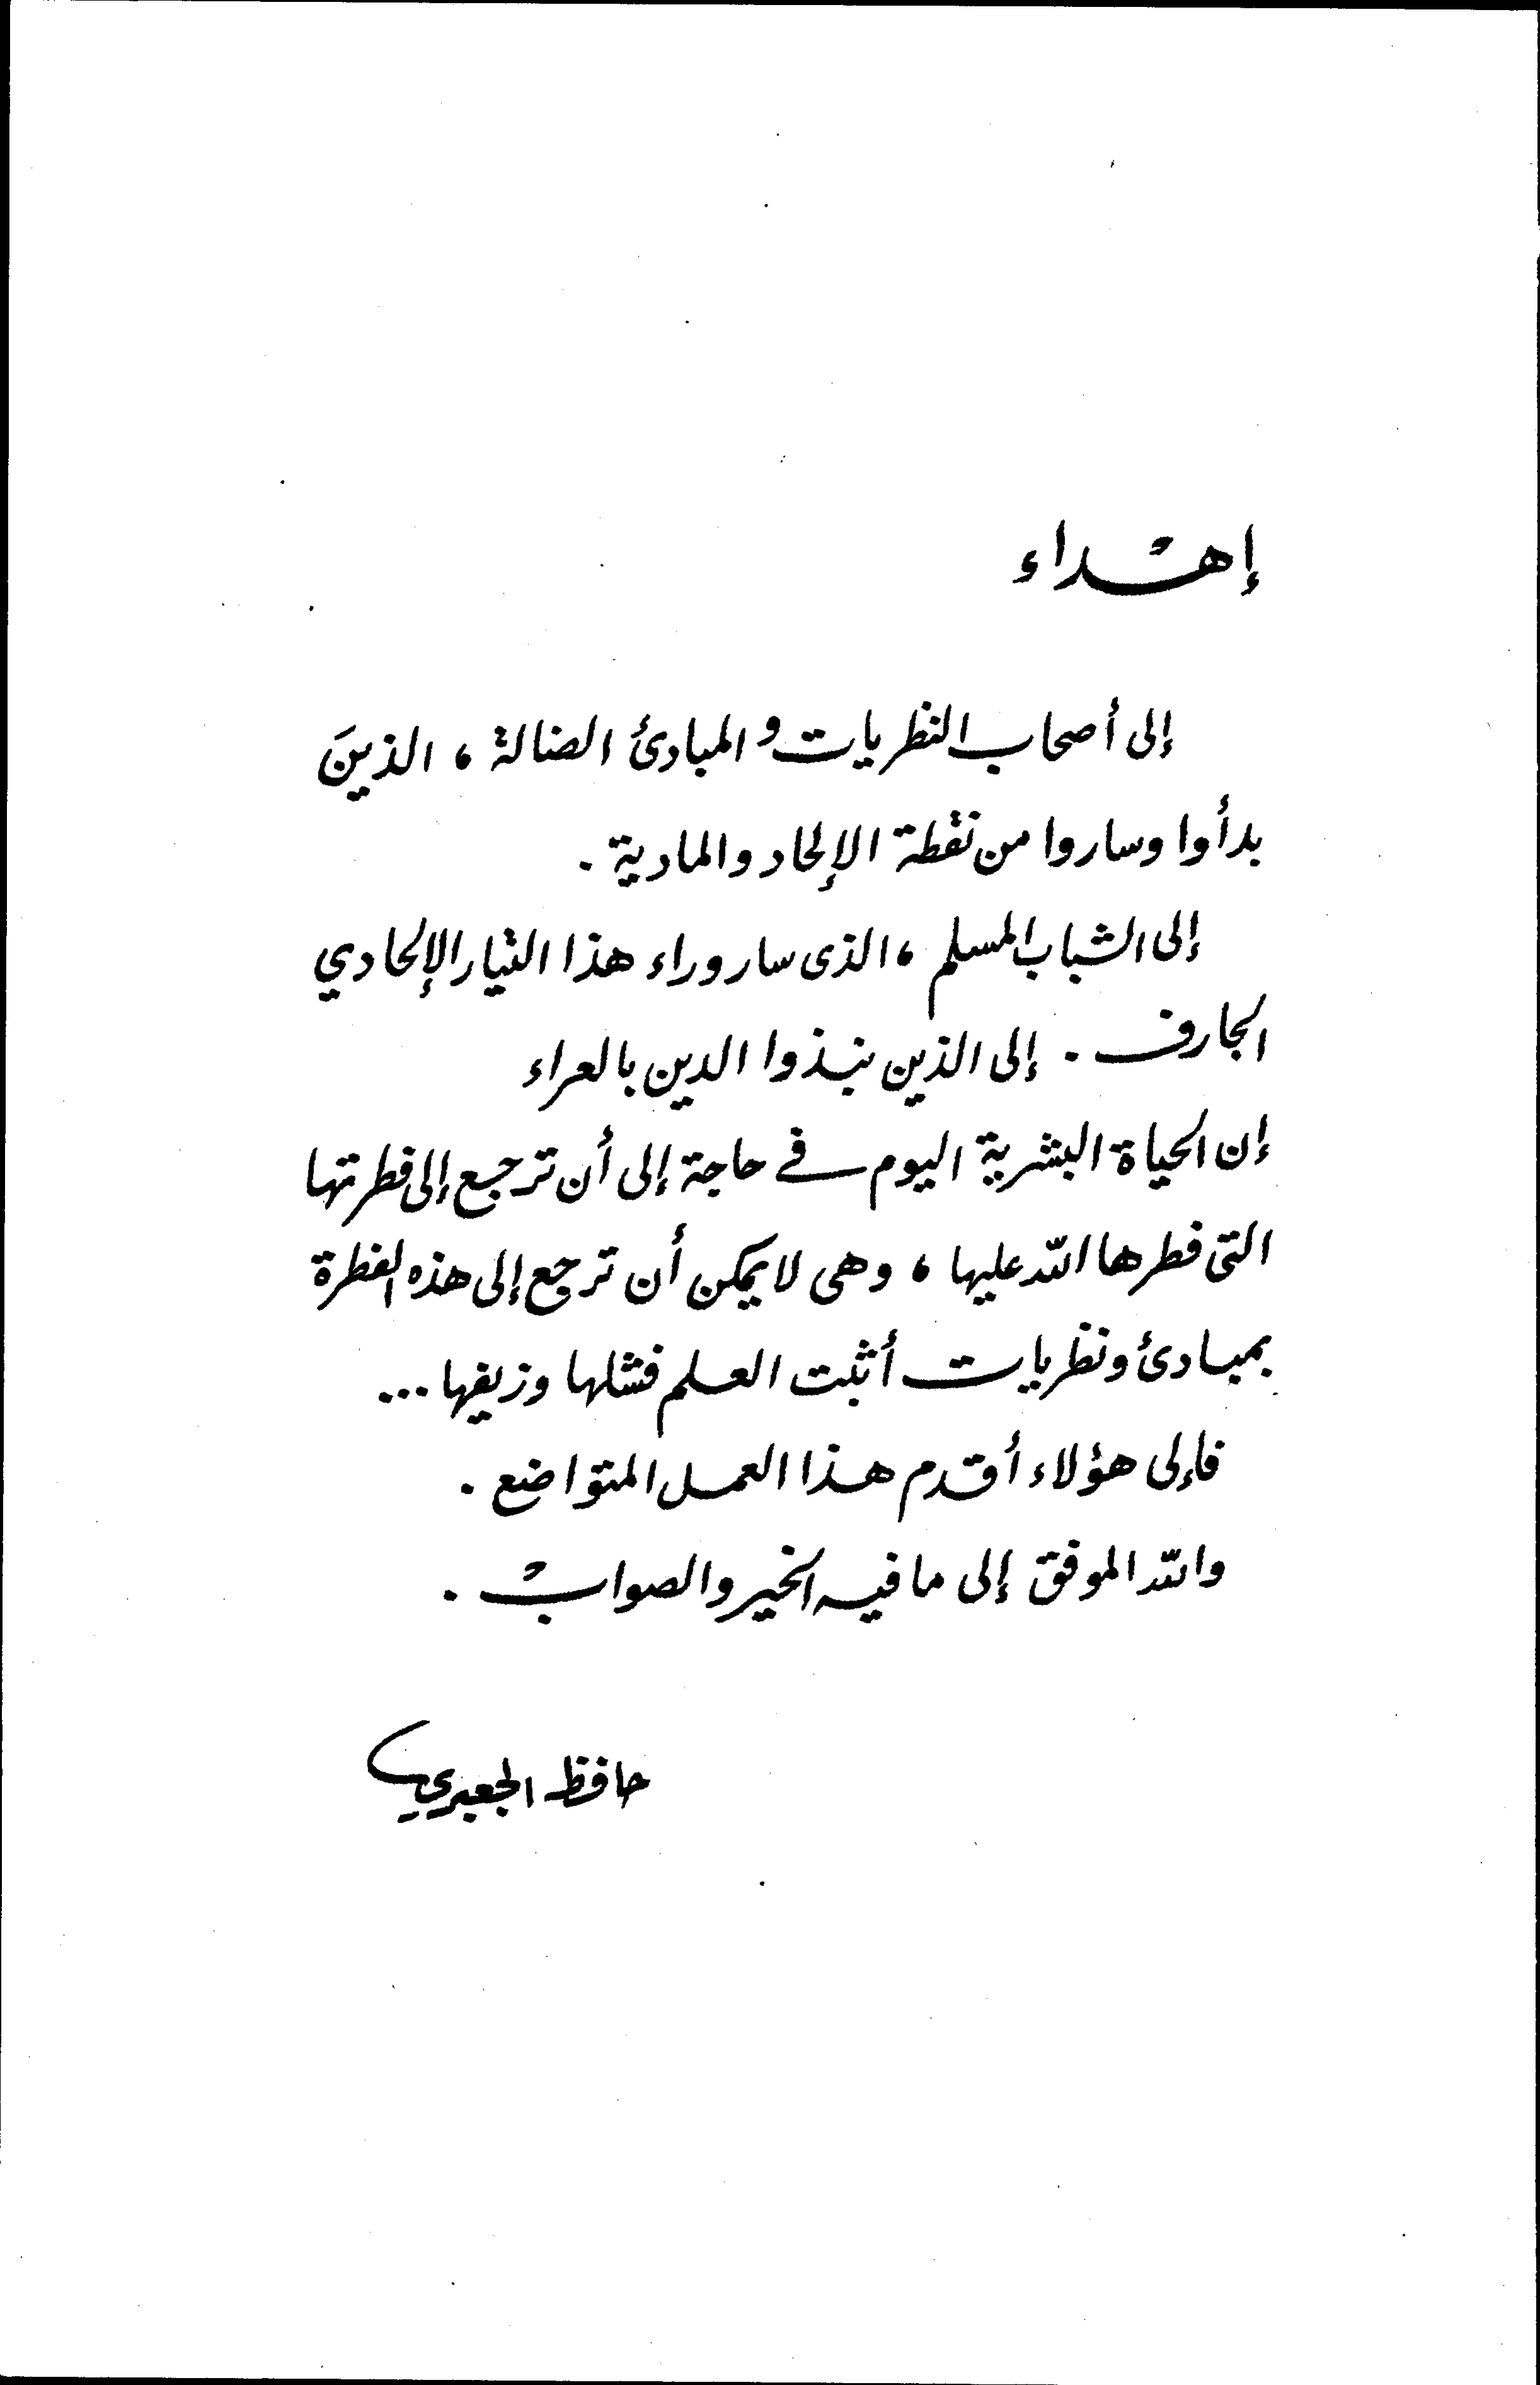 إهداء
إلى أصحاب النظريات والمبادئ الضالة، الذينَ
بدأوا وساروا من نقطة الإلحاد والمادية.
إلى الشباب المسلم، الذى سار وراء هذا التيار الإلحادي
الجارف. إلى الذين نبذوا الدين بالعراء
إن الحياة البشرية اليوم في حاجة إلى أن ترجع إلى فطرتها
التى فطرها الله عليها، وهى لا يمكن أن ترجع إلى هذه الفطرة
بمبادئ ونظريات أثبت العلم فشلها وزيفها...
فإلى هؤلاء أقدم هذا العمل المتواضع.
والله الموفق إلى ما فيه الخير والصواب.
حافظ الجعبري